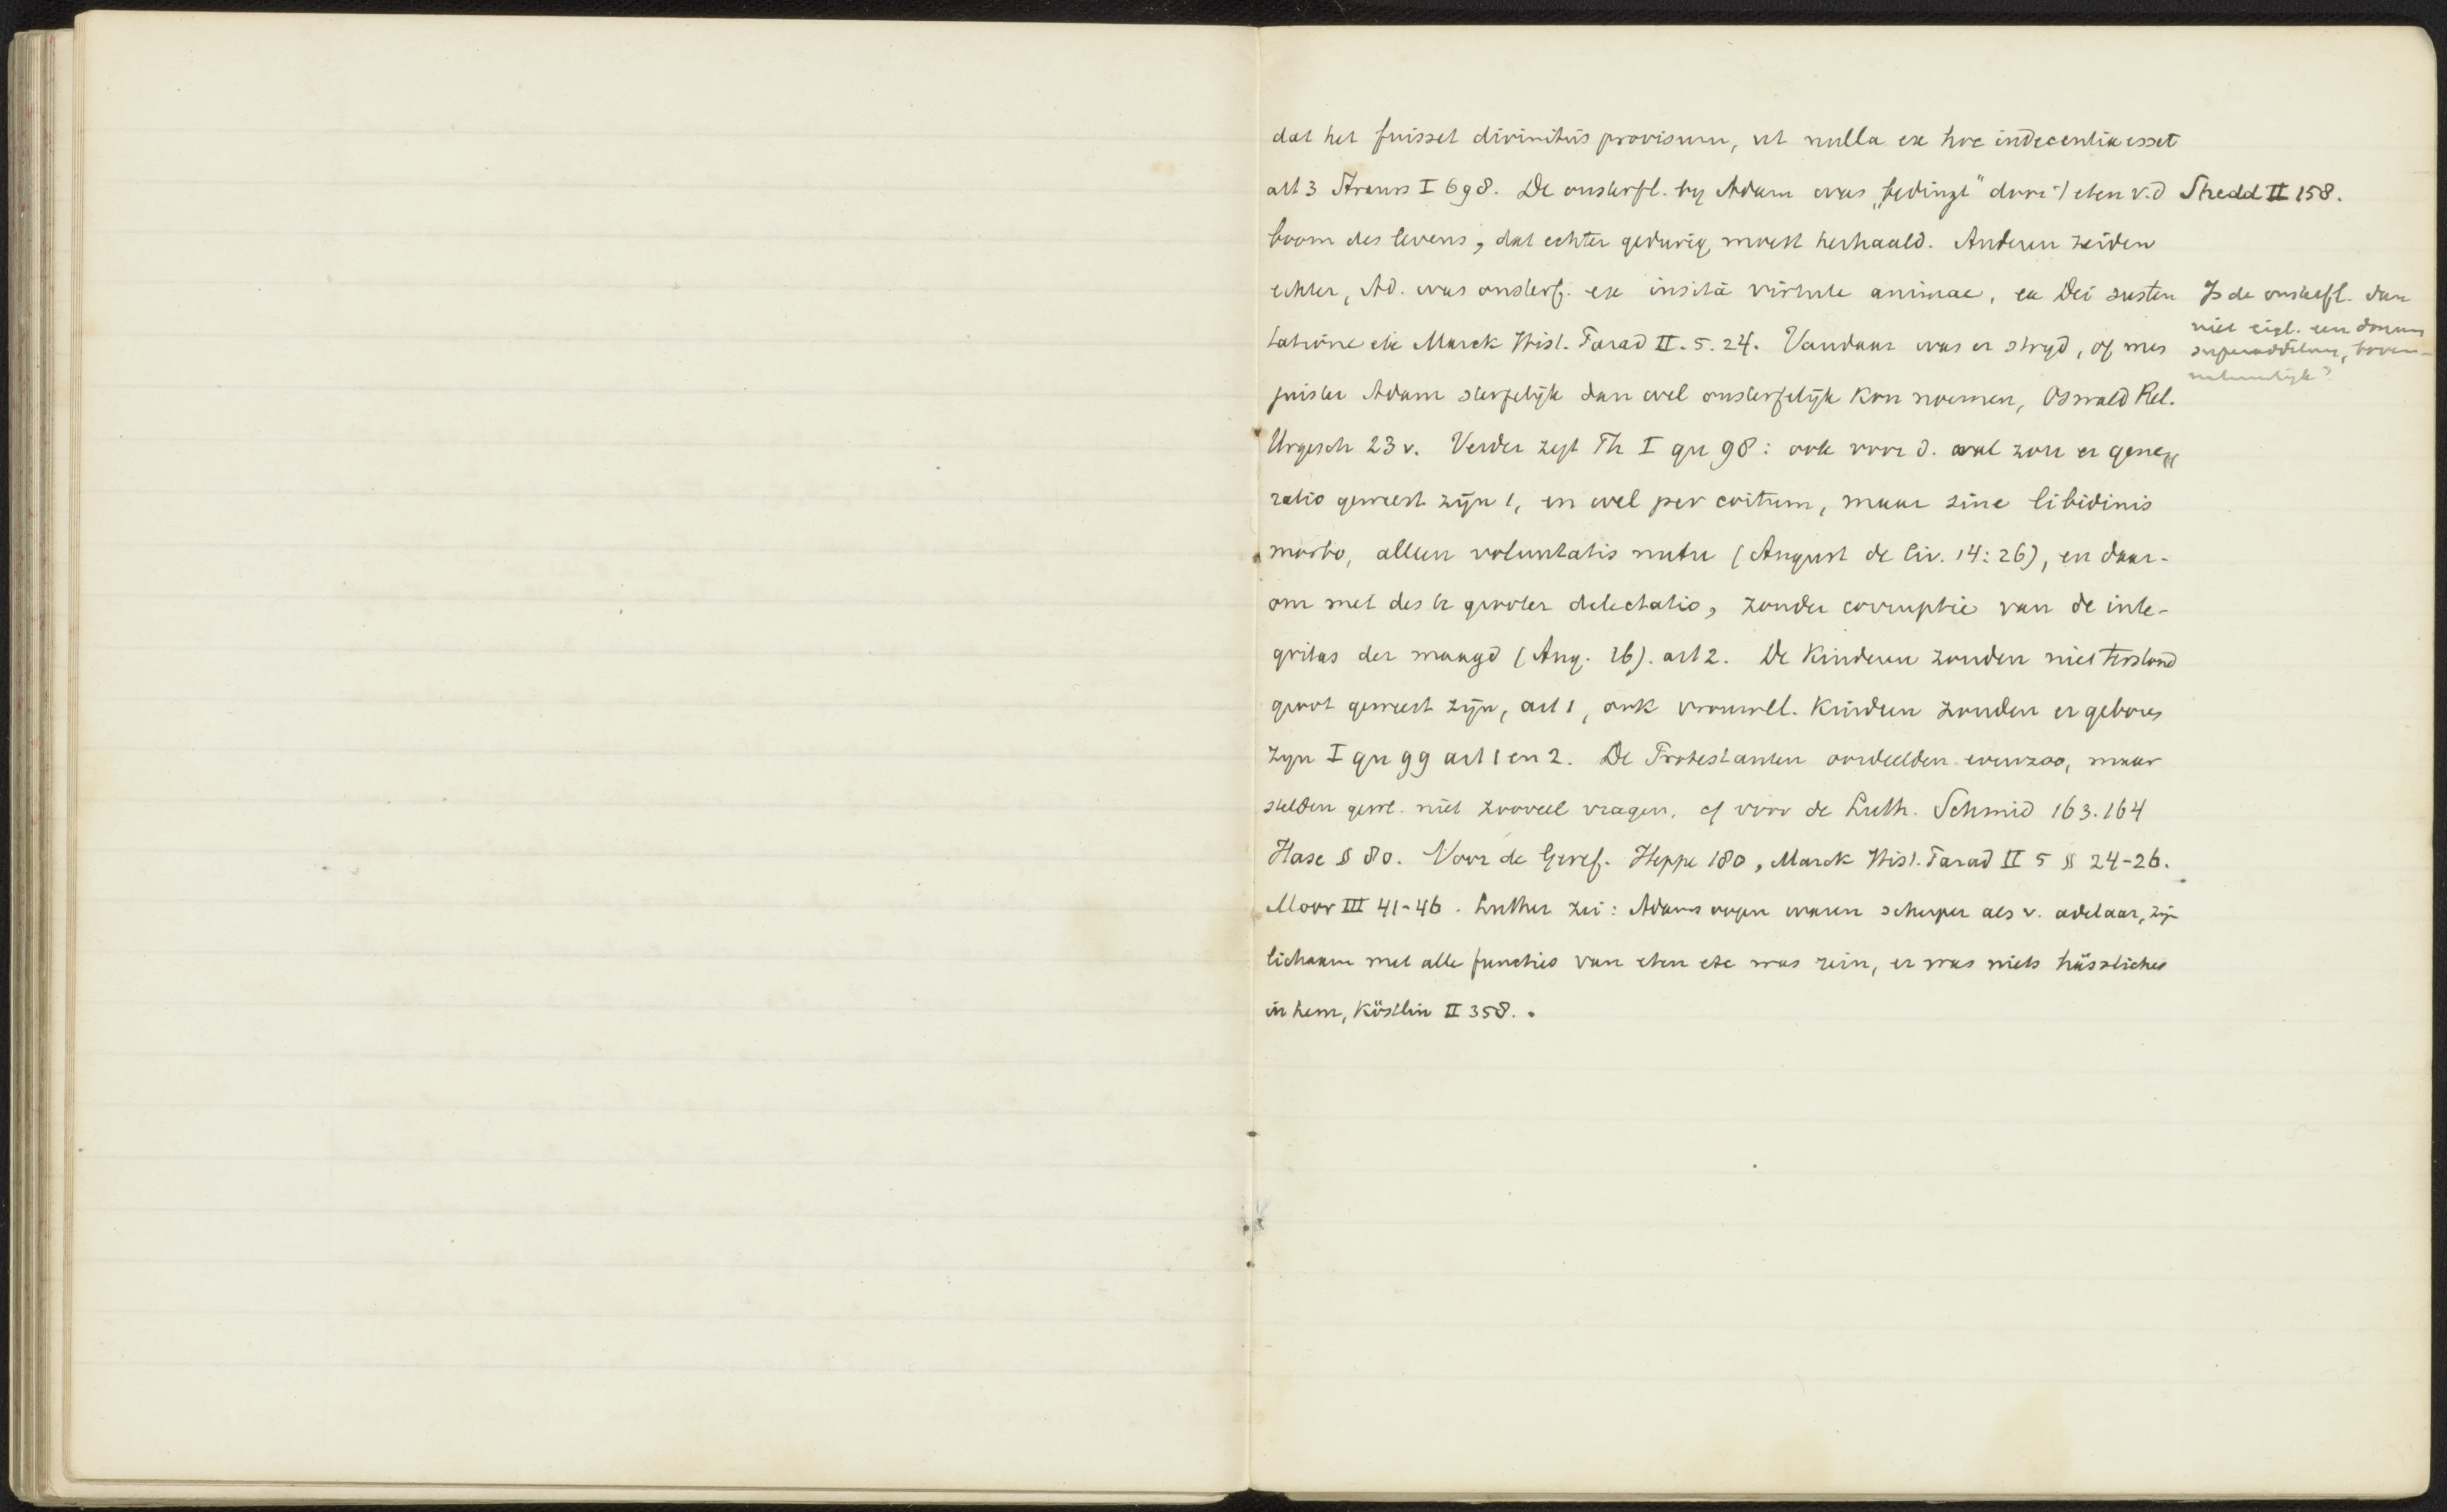 dat het fuisset divinitus provisum, ut nulla ex hoc indecentia esset
art 3 Strauss I 698. De onsterfl. by Adam was „bedingt" door 't eten v.d
boom des levens, dat echter gedurig moest herhaald. Anderen zeiden
echter, Ad. was onsterf. ex insitâ virtute animae, ex Dei susten
tatione etc Marck Hist. Parad II. 5. 24. Vandaar was er stryd, of men
juister Adam sterfelijk dan wel onsterfelijk kon noemen, Oswald Rel.
Urgesch 23 v. Verder zegt Th I qu 98: ook voor d. val zou er gene„
ratio geweest zijn 1, en wel per coitum, maar sine libidinis
morbo, alleen voluntatis nutu (August de Civ. 14:26), en daar-
om met des te grooter delectatio, zonder corruptie van de inte-
gritas der maagd (Aug. ib). art 2. De kinderen zouden niet terstond
groot geweest zijn, art 1, ook vrouwel. kinderen zouden er geboren
zyn I qu 99 art 1 en 2. De Protestanten oordeelden evenzoo, maar
stelden gewl. niet zooveel vragen. cf voor de Luth. Schmid 163.164
Hase § 80. Voor de Geref. Heppe 180, Marck Hist. Parad II 5 § 24-26.
Moor III 41-46. Luther zei: Adams oogen waren scherper als v. adelaar, zijn
lichaam met alle functies van eten etc was rein, er was niets hässliches
in hem, Köstlin II 358.
Shedd II 158.
Is de onsterfl. dan
niet eigl. een donum
superadditum, boven-
natuurlijk?